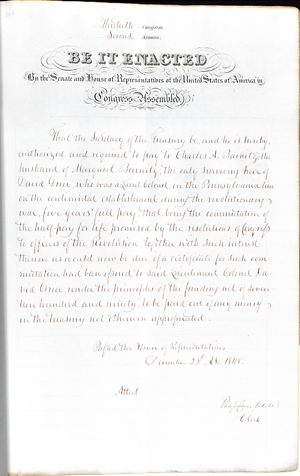 Thirtieth Congress
Second Session.
BE IT ENACTED
By the Senate and House of Representatives of the United States of America in
Congress Assembled,
That the Secretary of the Treasury be, and he is hereby,
authorized and required to pay to Charles A. Barnitz, the
husband of Margaret Barnitz, the only surviving heir of
David Grier who was a Lieut Colonel in the Pennsylvania line
on the continental establishment during the revolutionary
war, five years' full pay, that being the commutation of
the half pay for life promised by the resolutions of Congress
to officers of the Revolution, together with such interest
thereon as would now be due if a certificate for such com
mutation had been issued to said Lieutenant Colonel Da
vid Grier under the principles of the funding act of seven
teen hundred and ninety, to be paid out of any money
in the treasury not otherwise appropriated.
Passed the House of Representatives
December 23d 1848.
Attest
Clerk